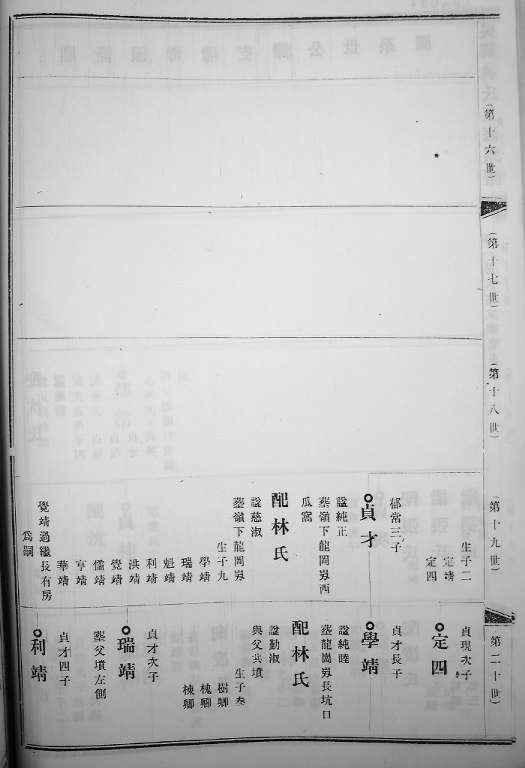 (第十六世)
(第十七世)
(第十八世)
(第十九世)
生子二
定靖
定四
郁常三子
貞才
諡純正
墓嶺下龍岡崀西
瓜窩
配林氏
諡慈淑
墓嶺下龍岡崀
生子九
學靖
瑞靖
魁靖
利靖
洪靖
覺靖
儒靖
亨靖
華靖
覺靖過繼長有房
爲嗣
(第二十世)
貞現次子
定四
貞才長子
學靖
諡純睦
墓龍崗崀長坑口
配林氏
諡勤淑
與父共墳
生子叁
樹卿
槐卿
棟卿
貞才次子
瑞靖
墓父墳左側
貞才四子
利靖